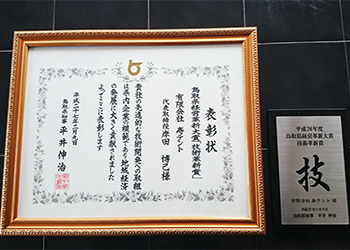 表彰状
鳥取県経営革新大賞「技術革新賞」
有限会社 寿テント
代表取締役 岸田 博己 様
貴社の先進的な技術開発への取組
は県内企業の模範であり地域経済
の発展に大きく貢献されました
よってここに表彰します
平成二十七年二月九日
鳥取県知事 平井 伸治
平成26年度
鳥取県経営革新大賞
技術革新賞
技
有限会社 寿テント 様
平成27年2月9日
鳥取県知事 平井 伸治